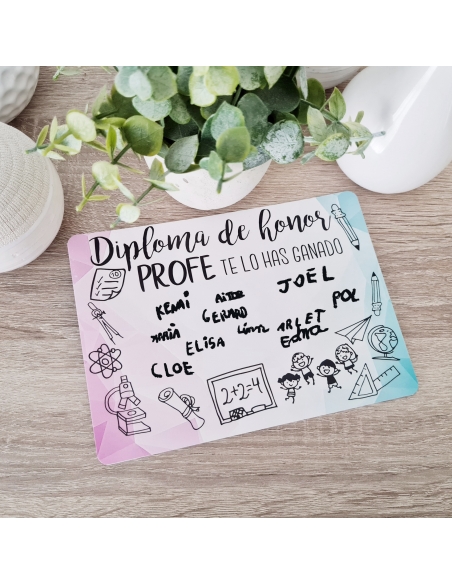 Diploma de honor
PROFE TE LO HAS GANADO
KEMI AITOR JOËL
GERARD POL
MARIA ARLET
ELISA Edna
CLOE
2+2=4
10